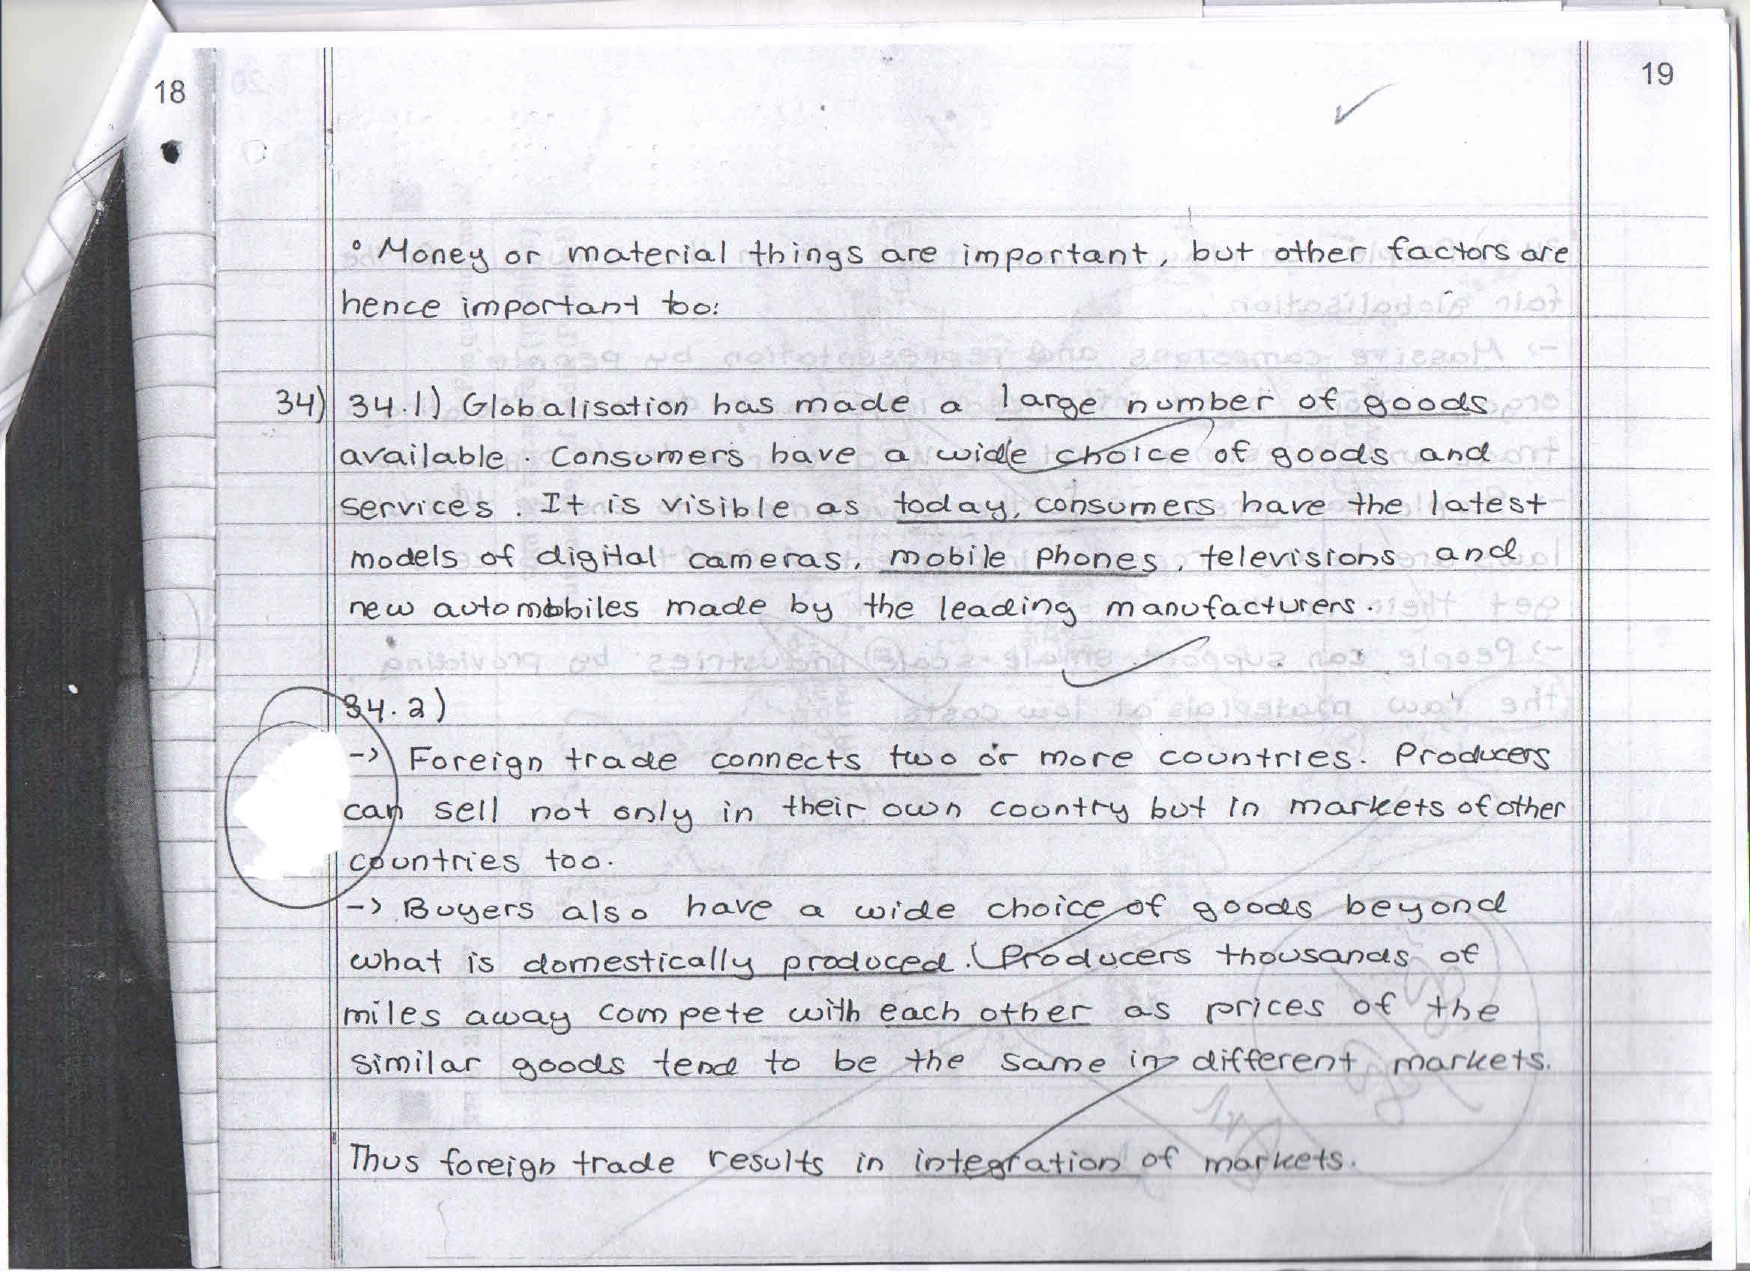 18
19
° Money or material things are important, but other factors are
hence important too:
34) 34.1) Globalisation has made a large number of goods
available. Consumers have a wide choice of goods and
services. It is visible as today, consumers have the latest
models of digital cameras, mobile phones, televisions and
new automobiles made by the leading manufacturers.
34.2)
-> Foreign trade connects two or more countries. Producers
can sell not only in their own country but in markets of other
countries too.
-> Buyers also have a wide choice of goods beyond
what is domestically produced. Producers thousands of
miles away compete with each other as prices of the
similar goods tend to be the same in different markets.
Thus foreign trade results in integration of markets.